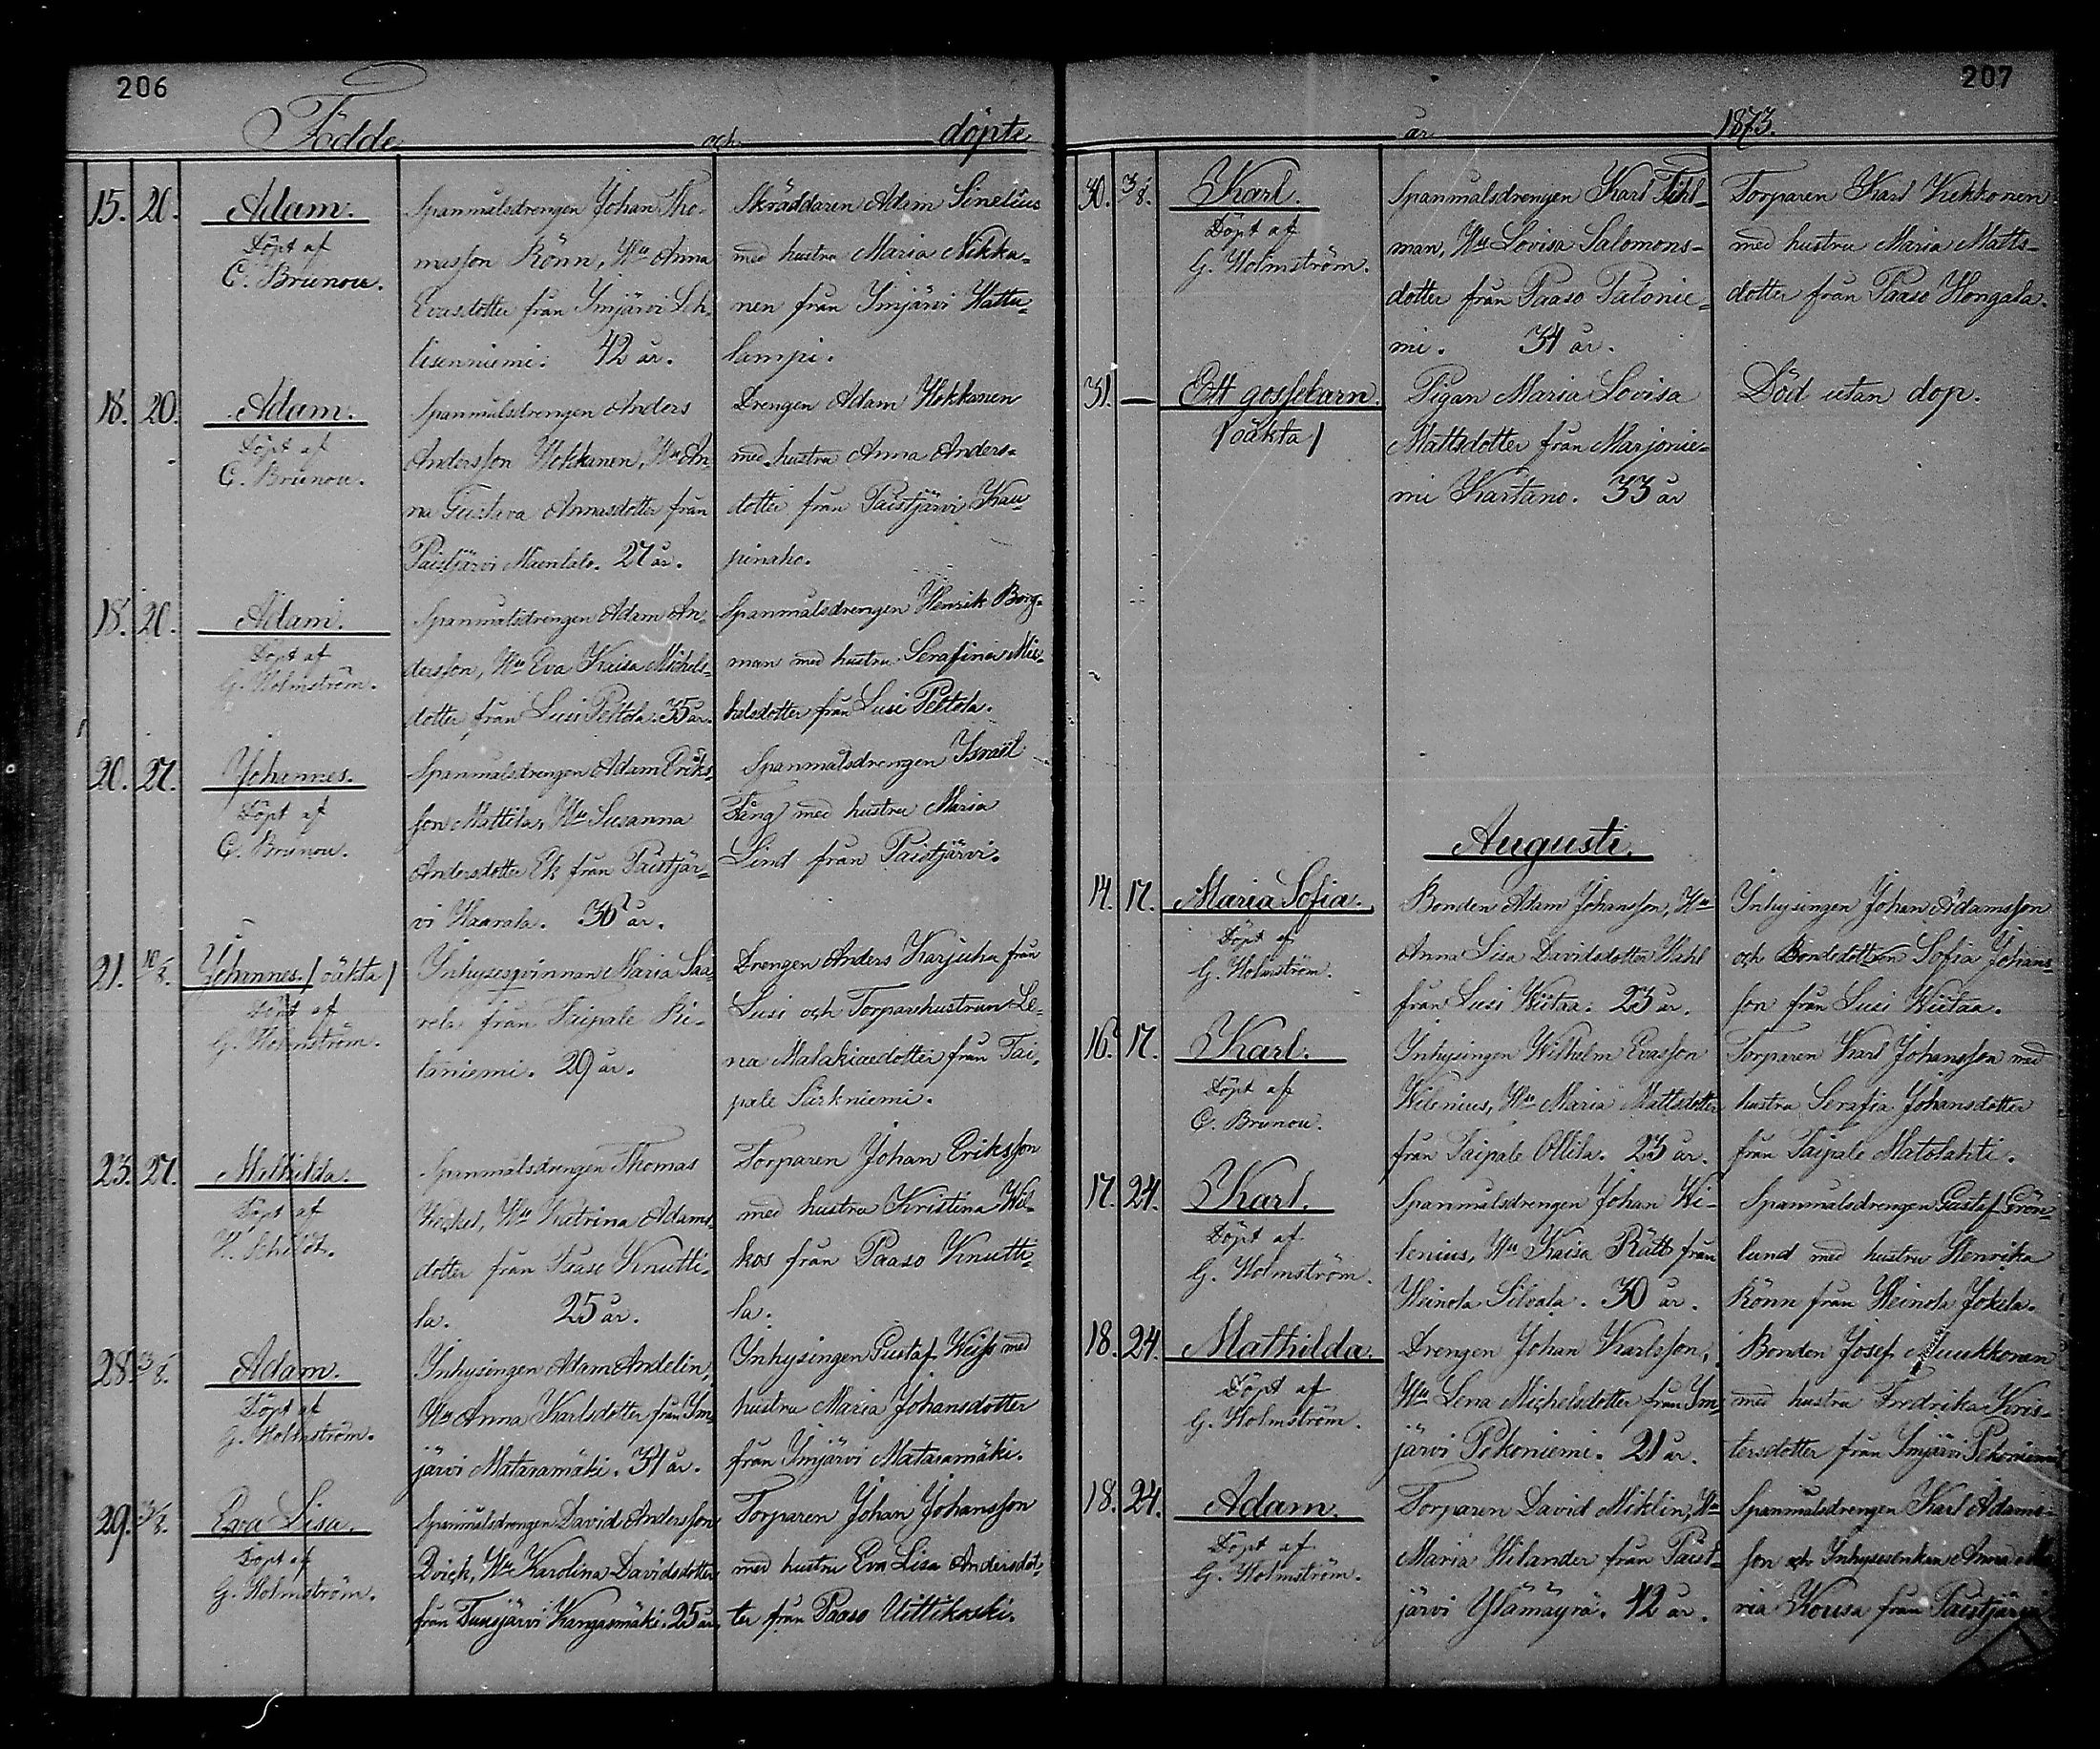 206
Födde och döpte
15. 20. Adam.
Döpt af
C. Brunou.
Spanmålsdrengen Johan Tho-
masson Rönn, Hu Anna
Evasdotter från Imjärvi Leh
lisenniemi. 42 år.
Skräddaren Adam Sinelius
med hustru Maria Nikka-
nen från Imjärvi Hattu-
lampi.
18. 20. Adam.
Döpt af
C. Brunou.
Spanmålsdrengen Anders
Andersson Hokkanen, Hu An-
na Gustava Annasdotter från
Paistjärvi Maentalo. 27 år.
Drengen Adam Hokkanen
med hustru Anna Anders-
dotter från Paistjärvi Kau-
pinaho.
18. 20. Adam.
Döpt af
G. Holmström.
Spanmålsdrengen Adam An-
dersson, Hu Eva Kaisa Michels-
dotter från Lusi Peltola. 35 år.
Spanmålsdrengen Henrik Borg-
man med hustru Serafina Mic-
helsdotter från Lusi Peltola.
20. 27. Johannes.
Döpt af
C. Brunou.
Spanmålsdrengen Adam Eriks-
son Mattila, Hu Susanna
Andersdotter Ek från Paistjär-
vi Haarala. 36 år.
Spanmålsdrengen Israël
Fäng med hustru Maria
Lind från Paistjärvi.
21. 10/8. Johannes. / oäkta /
Döpt af
G. Holmström.
Inhysesqvinnan Maria Saa-
rela från Taipale Ki-
laniemi. 29 år.
Drengen Anders Karjuha från
Lusi och Torparehustrun Le-
na Malakiaedotter från Tai-
pale Särkniemi.
23. 27. Mathilda.
Döpt af
H. Schildt.
Spanmålsdrengen Thomas
Heckel, Hu Katrina Adams-
dotter från Paaso Knutti-
la. 25 år.
Torparen Johan Eriksson
med hustru Kristina Wil-
kos från Paaso Knutti-
la.
28. 3/8. Adam.
Döpt af
G. Holmström.
Inhysingen Adam Andelin,
Hu Anna Karlsdotter från Im-
järvi Matasamäki. 31 år.
Inhysingen Gustaf Weiss med
hustru Maria Johansdotter
från Imjärvi Matasamäki.
29. 3/8. Eva Lisa.
Döpt af
G. Holmström.
Spanmålsdrengen David Andersson
Qvick, Hu Karolina Davidsdotter
från Tuusjärvi Kangasmäki. 25 år.
Torparen Johan Johansson
med hustru Eva Lisa Andersdot-
ter från Paaso Uittikoski.
207
år 1873.
30. 3/8. Karl.
Döpt af
G. Holmström.
Spanmålsdrengen Karl Tihl-
man, Hu Lovisa Salomons-
dotter från Paaso Talonie-
mi. 34 år.
Torparen Karl Kekkonen
med hustru Maria Matts-
dotter från Paaso Hongala.
31. — Ett gossebarn.
/ oäkta /
Pigan Maria Lovisa
Mattsdotter från Marjonie-
mi Kartano. 33 år
Död utan dop.
Augusti.
14. 17. Maria Sofia.
Döpt af
G. Holmström.
Bonden Adam Johansson, Hu
Anna Lisa Davidsdotter Wahl
från Lusi Wiitaa. 23 år.
Inhysingen Johan Adamsson
och Bondedottren Sofia Johans-
son från Lusi Wiitaa.
16. 17. Karl.
Döpt af
C. Brunou.
Inhysingen Wilhelm Evasson
Wilenius, Hu Maria Mattsdotter
från Taipale Ollila. 23 år.
Torparen Karl Johansson med
hustru Serafia Johansdotter
från Taipale Matolahti.
17. 24. Karl.
Döpt af
G. Holmström.
Spanmålsdrengen Johan Wi-
lenius, Hu Kaisa Rätt från
Heinola Silvala. 30 år.
Spanmålsdrengen Gustaf Grön-
lund med hustru Henrika
Rönn från Heinola Jokela.
18. 24. Mathilda.
Döpt af
G. Holmström.
Drengen Johan Karlsson,
Hu Lena Michelsdotter från Im-
järvi Pekoniemi. 21 år.
Bonden Josef Muukkonen
med hustru Fredrika Kris-
tersdotter från Imjärvi Pekoniemi
18. 24. Adam.
Döpt af
G. Holmström.
Torparen David Miklin, Hu
Maria Wilander från Paist-
järvi Ylämäyrä. 42 år.
Spanmålsdrengen Karl Adams-
son och Inhysesenkan Anna Ma
ria Kousa från Paistjärvi